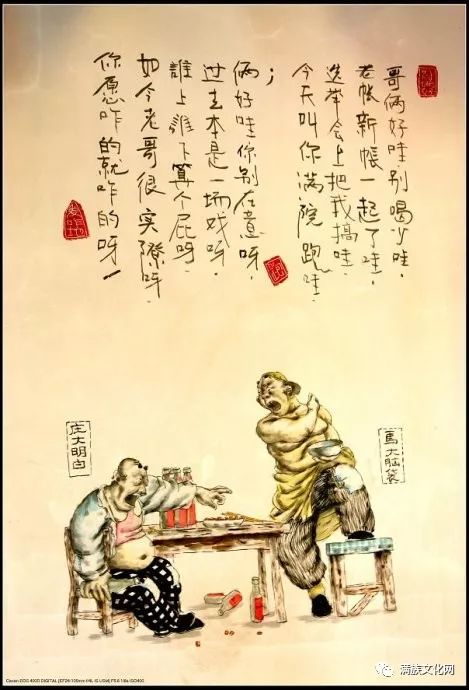 哥俩好哇别喝少哇，
老帐新帐一起了哇，
选举会上把我搞哇，
今天叫你满院跑哇，
俩好哇你别在意呀，
过去本是一场戏呀，
誰上誰下算个屁呀，
如今老哥很实際呀，
你愿咋的就咋的呀！
馬大脑袋
庄大明白
Canon EOS 400D DIGITAL
满族文化网